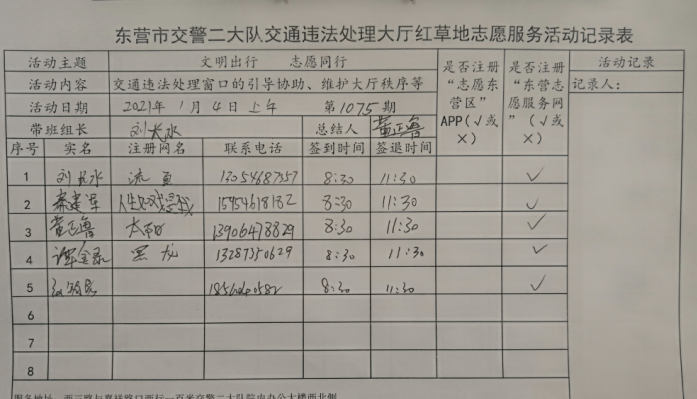 东营市交警二大队交通违法处理大厅红草地志愿服务活动记录表
活动主题 文明出行 志愿同行 是否注册“志愿东营区”APP(√或×) 是否注册“东营志愿服务网”(√或×) 活动记录
活动内容 交通违法处理窗口的引导协助、维护大厅秩序等 记录人：
活动日期 2021年1月4日上午 第1075期
带班组长 刘长水 总结人 黄正鲁
序号 实名 注册网名 联系电话 签到时间 签退时间
1 刘长水 流星 13054687357 8:30 11:30 √
2 秦建军 15954618182 8:30 11:30 √
3 黄正鲁 太阳 13906478829 8:30 11:30 √
4 黑龙 13287350629 8:30 11:30 √
5 8:30 11:30 √
6
7
8
服务地址：西三路与嘉祥路口西行一百米交警二大队院内办公大楼西北侧